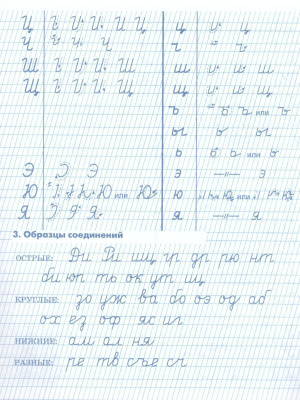 Ц Ц Ц Ц Ц Ц ц ц ц
Ч Ч Ч Ч ч ч ч
Ш Ш Ш Ш Ш ш ш ш ш
Щ Щ Щ Щ Щ щ щ щ щ
ъ ъ ъ или ъ
ы ы ы
ь ь ь или ь
Э Э Э э —//— э
Ю Ю или Ю ю ю или ю
Я Я Я Я я —//— я
3. Образцы соединений
ОСТРЫЕ: Ди Ри шц гр др рю нт
би юр ть ок ут щ
КРУГЛЫЕ: зо уж ва бо оэ од аб
ох ез оф яс иг
НИЖНИЕ: ам ал ня
РАЗНЫЕ: ре тв съе сч